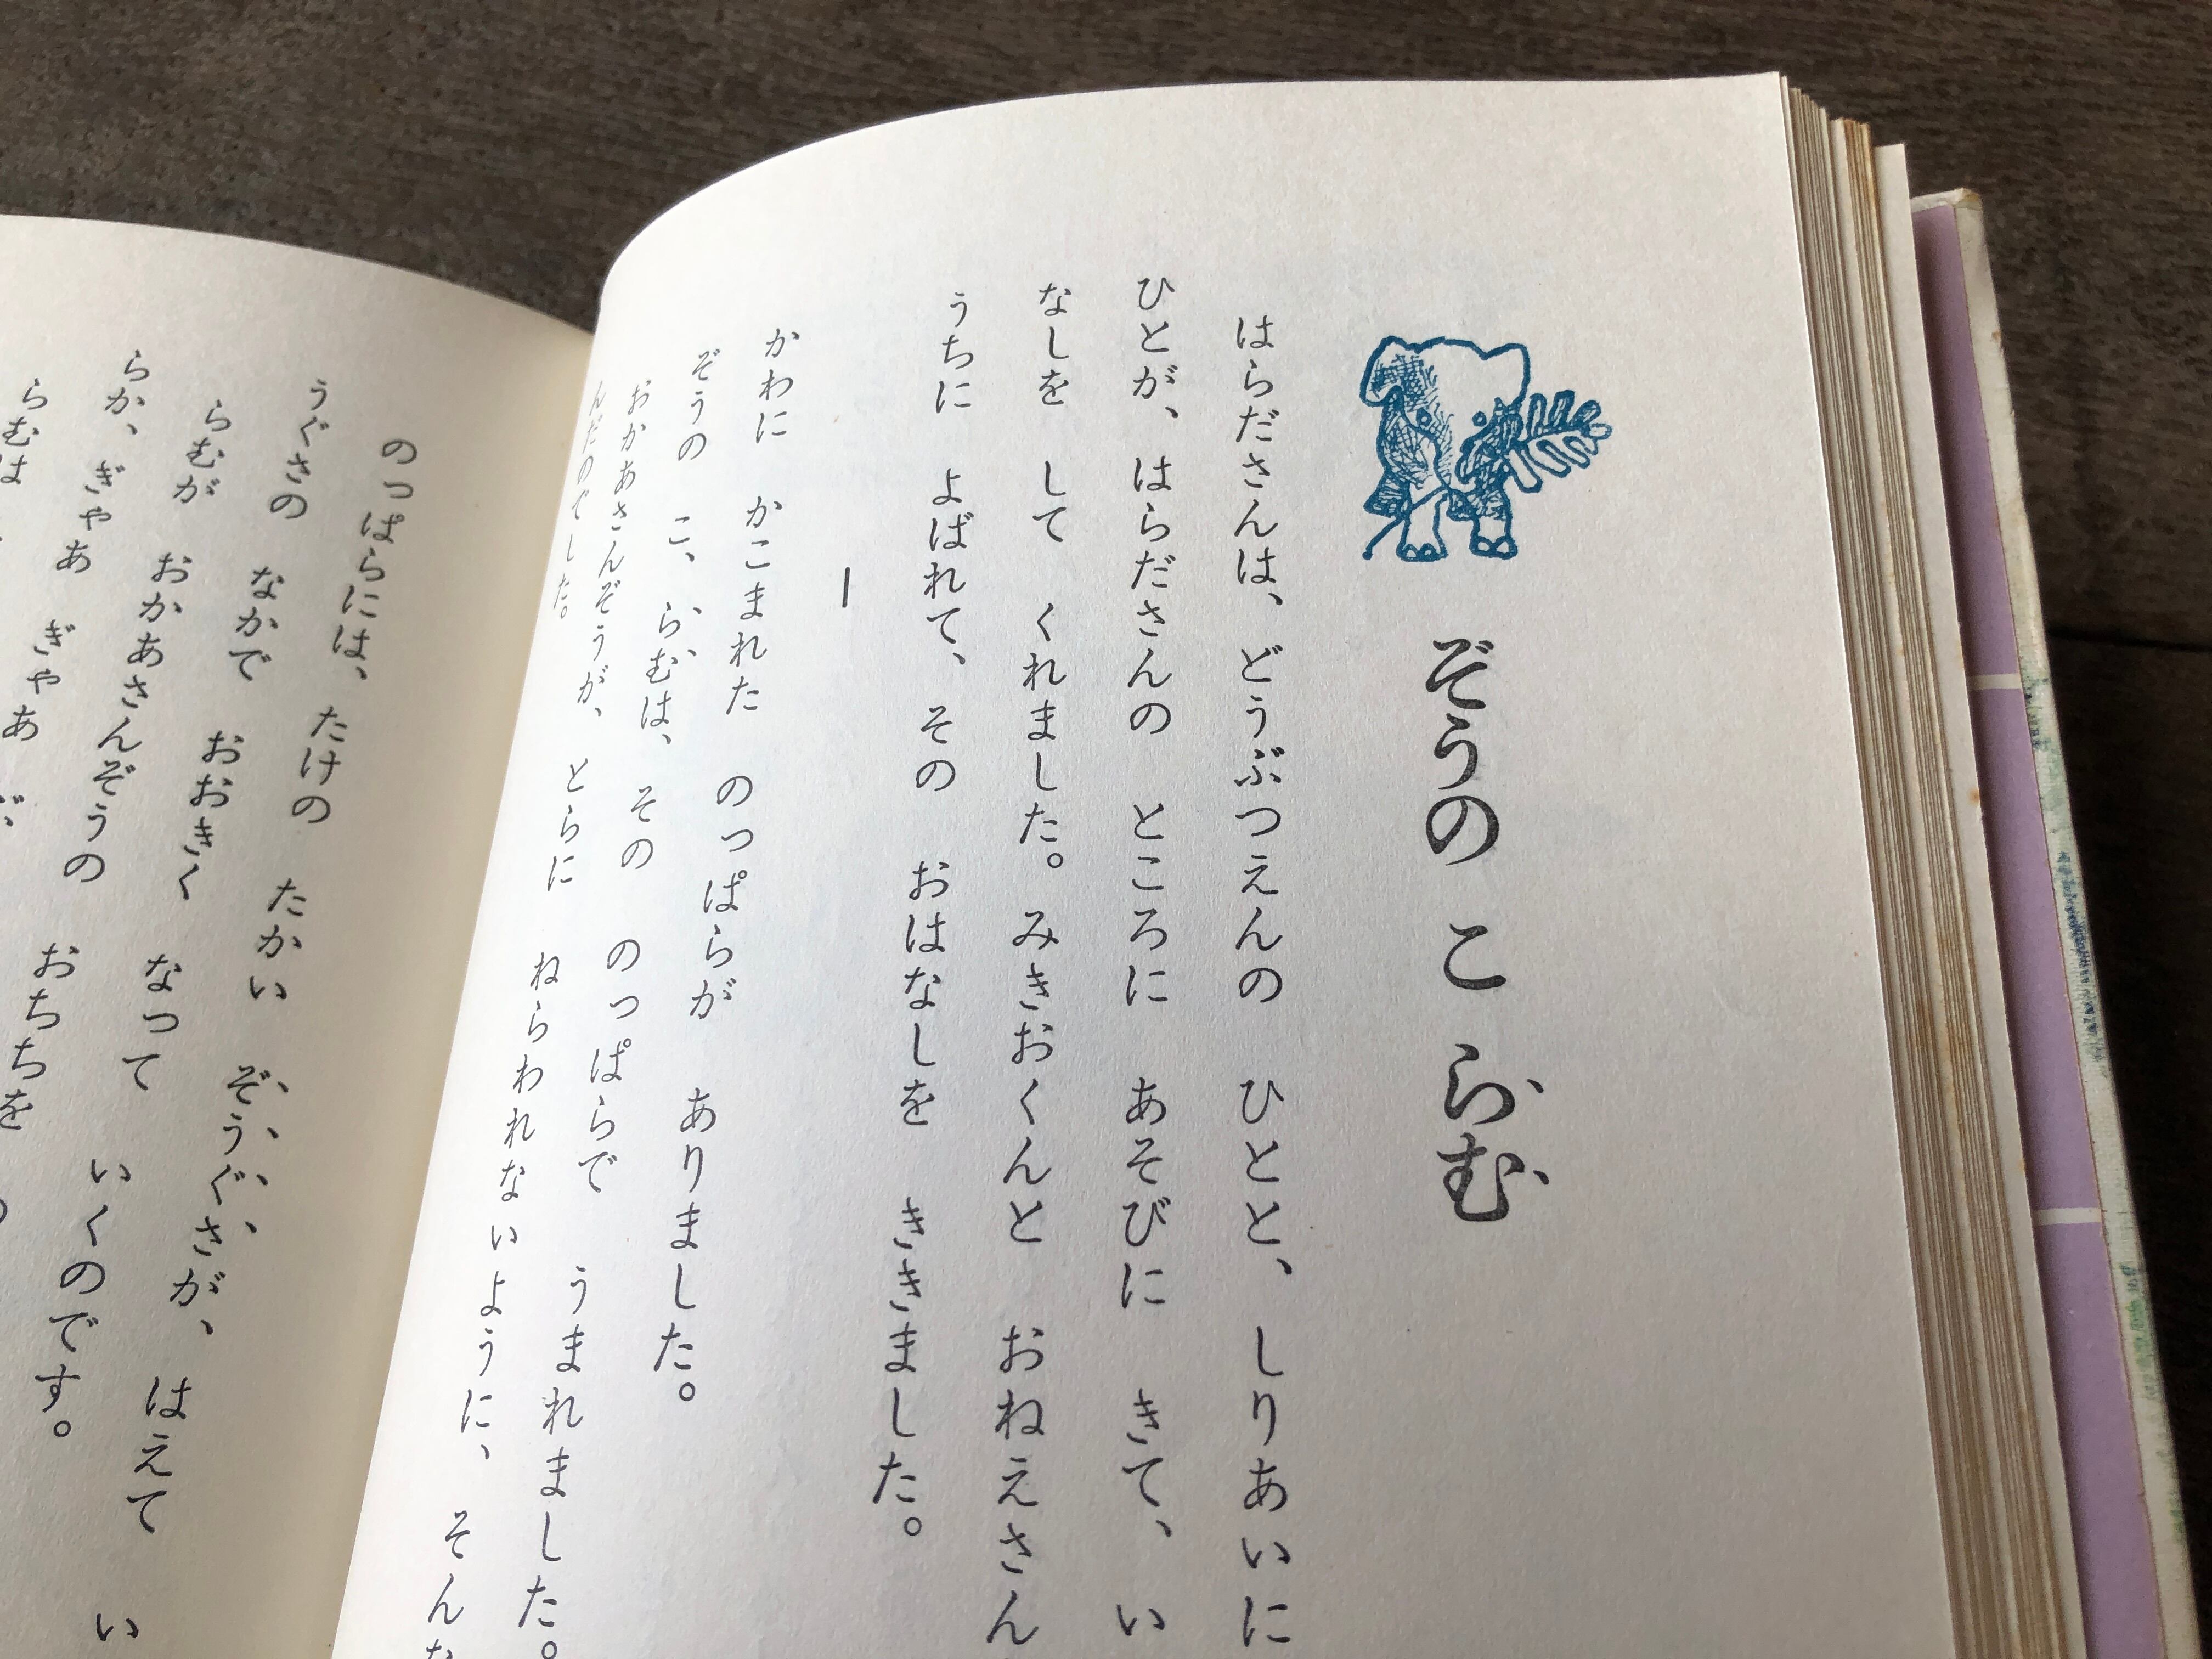 ぞうの こ らむ
はらださんは、どうぶつえんの ひとと、しりあいに
ひとが、はらださんの ところに あそびに きて、い
なしを して くれました。みきおくんと おねえさん
うちに よばれて、その おはなしを ききました。
かわに かこまれた のっぱらが ありました。
ぞうの こ、らむは、その のっぱらで うまれました。
おかあさんぞうが、とらに ねらわれないように、そんな
んだのでした。
のっぱらには、たけの たかい ぞうぐさが、はえて い
うぐさの なかで おおきく なって いくのです。
らむが おかあさんぞうの おちちを
らか、ぎゃあ ぎゃあ
らむは